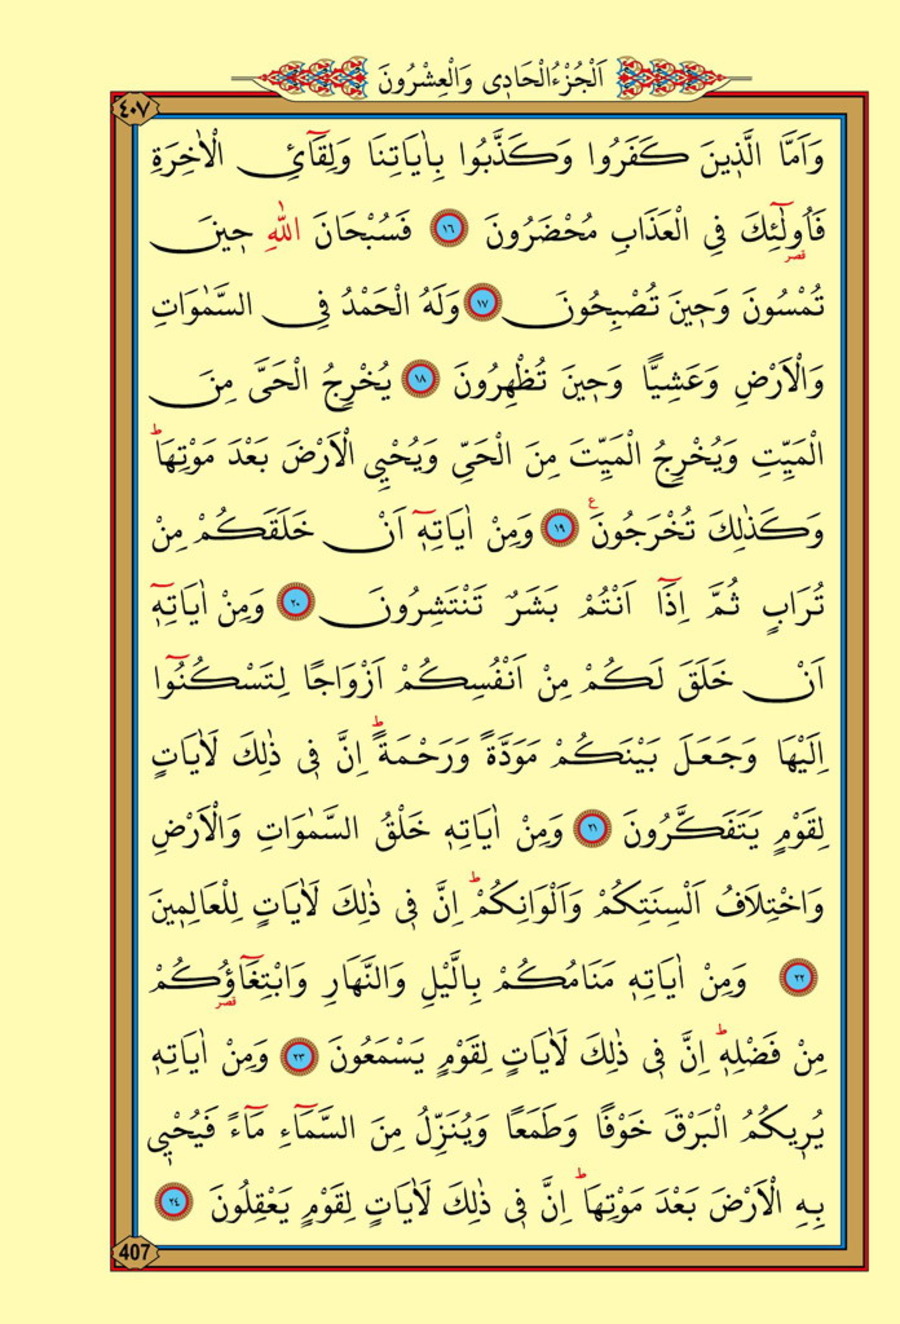 اَلْجُزْءُالْحَادٖى وَالْعِشْرُونَ
٤٠٧
وَاَمَّا الَّذٖينَ كَفَرُوا وَكَذَّبُوا بِاٰيَاتِنَا وَلِقَٓائِ الْاٰخِرَةِ
فَاُو۬لٰٓئِكَ فِى الْعَذَابِ مُحْضَرُونَ ١٦ فَسُبْحَانَ اللّٰهِ حٖينَ
قصر
تُمْسُونَ وَحٖينَ تُصْبِحُونَ ١٧ وَلَهُ الْحَمْدُ فِى السَّمٰوَاتِ
وَالْاَرْضِ وَعَشِيًّا وَحٖينَ تُظْهِرُونَ ١٨ يُخْرِجُ الْحَىَّ مِنَ
الْمَيِّتِ وَيُخْرِجُ الْمَيِّتَ مِنَ الْحَىِّ وَيُحْيِى الْاَرْضَ بَعْدَ مَوْتِهَا ط
وَكَذٰلِكَ تُخْرَجُونَ ع ١٩ وَمِنْ اٰيَاتِهٖٓ اَنْ خَلَقَكُمْ مِنْ
تُرَابٍ ثُمَّ اِذَٓا اَنْتُمْ بَشَرٌ تَنْتَشِرُونَ ٢٠ وَمِنْ اٰيَاتِهٖٓ
اَنْ خَلَقَ لَكُمْ مِنْ اَنْفُسِكُمْ اَزْوَاجًا لِتَسْكُنُٓوا
اِلَيْهَا وَجَعَلَ بَيْنَكُمْ مَوَدَّةً وَرَحْمَةً ط اِنَّ فٖى ذٰلِكَ لَاٰيَاتٍ
لِقَوْمٍ يَتَفَكَّرُونَ ٢١ وَمِنْ اٰيَاتِهٖ خَلْقُ السَّمٰوَاتِ وَالْاَرْضِ
وَاخْتِلَافُ اَلْسِنَتِكُمْ وَاَلْوَانِكُمْ ط اِنَّ فٖى ذٰلِكَ لَاٰيَاتٍ لِلْعَالِمٖينَ
٢٢ وَمِنْ اٰيَاتِهٖ مَنَامُكُمْ بِالَّيْلِ وَالنَّهَارِ وَابْتِغَٓاؤُ۬كُمْ
قصر
مِنْ فَضْلِهٖ ط اِنَّ فٖى ذٰلِكَ لَاٰيَاتٍ لِقَوْمٍ يَسْمَعُونَ ٢٣ وَمِنْ اٰيَاتِهٖ
يُرٖيكُمُ الْبَرْقَ خَوْفًا وَطَمَعًا وَيُنَزِّلُ مِنَ السَّمَٓاءِ مَٓاءً فَيُحْيٖى
بِهِ الْاَرْضَ بَعْدَ مَوْتِهَا ط اِنَّ فٖى ذٰلِكَ لَاٰيَاتٍ لِقَوْمٍ يَعْقِلُونَ ٢٤
407